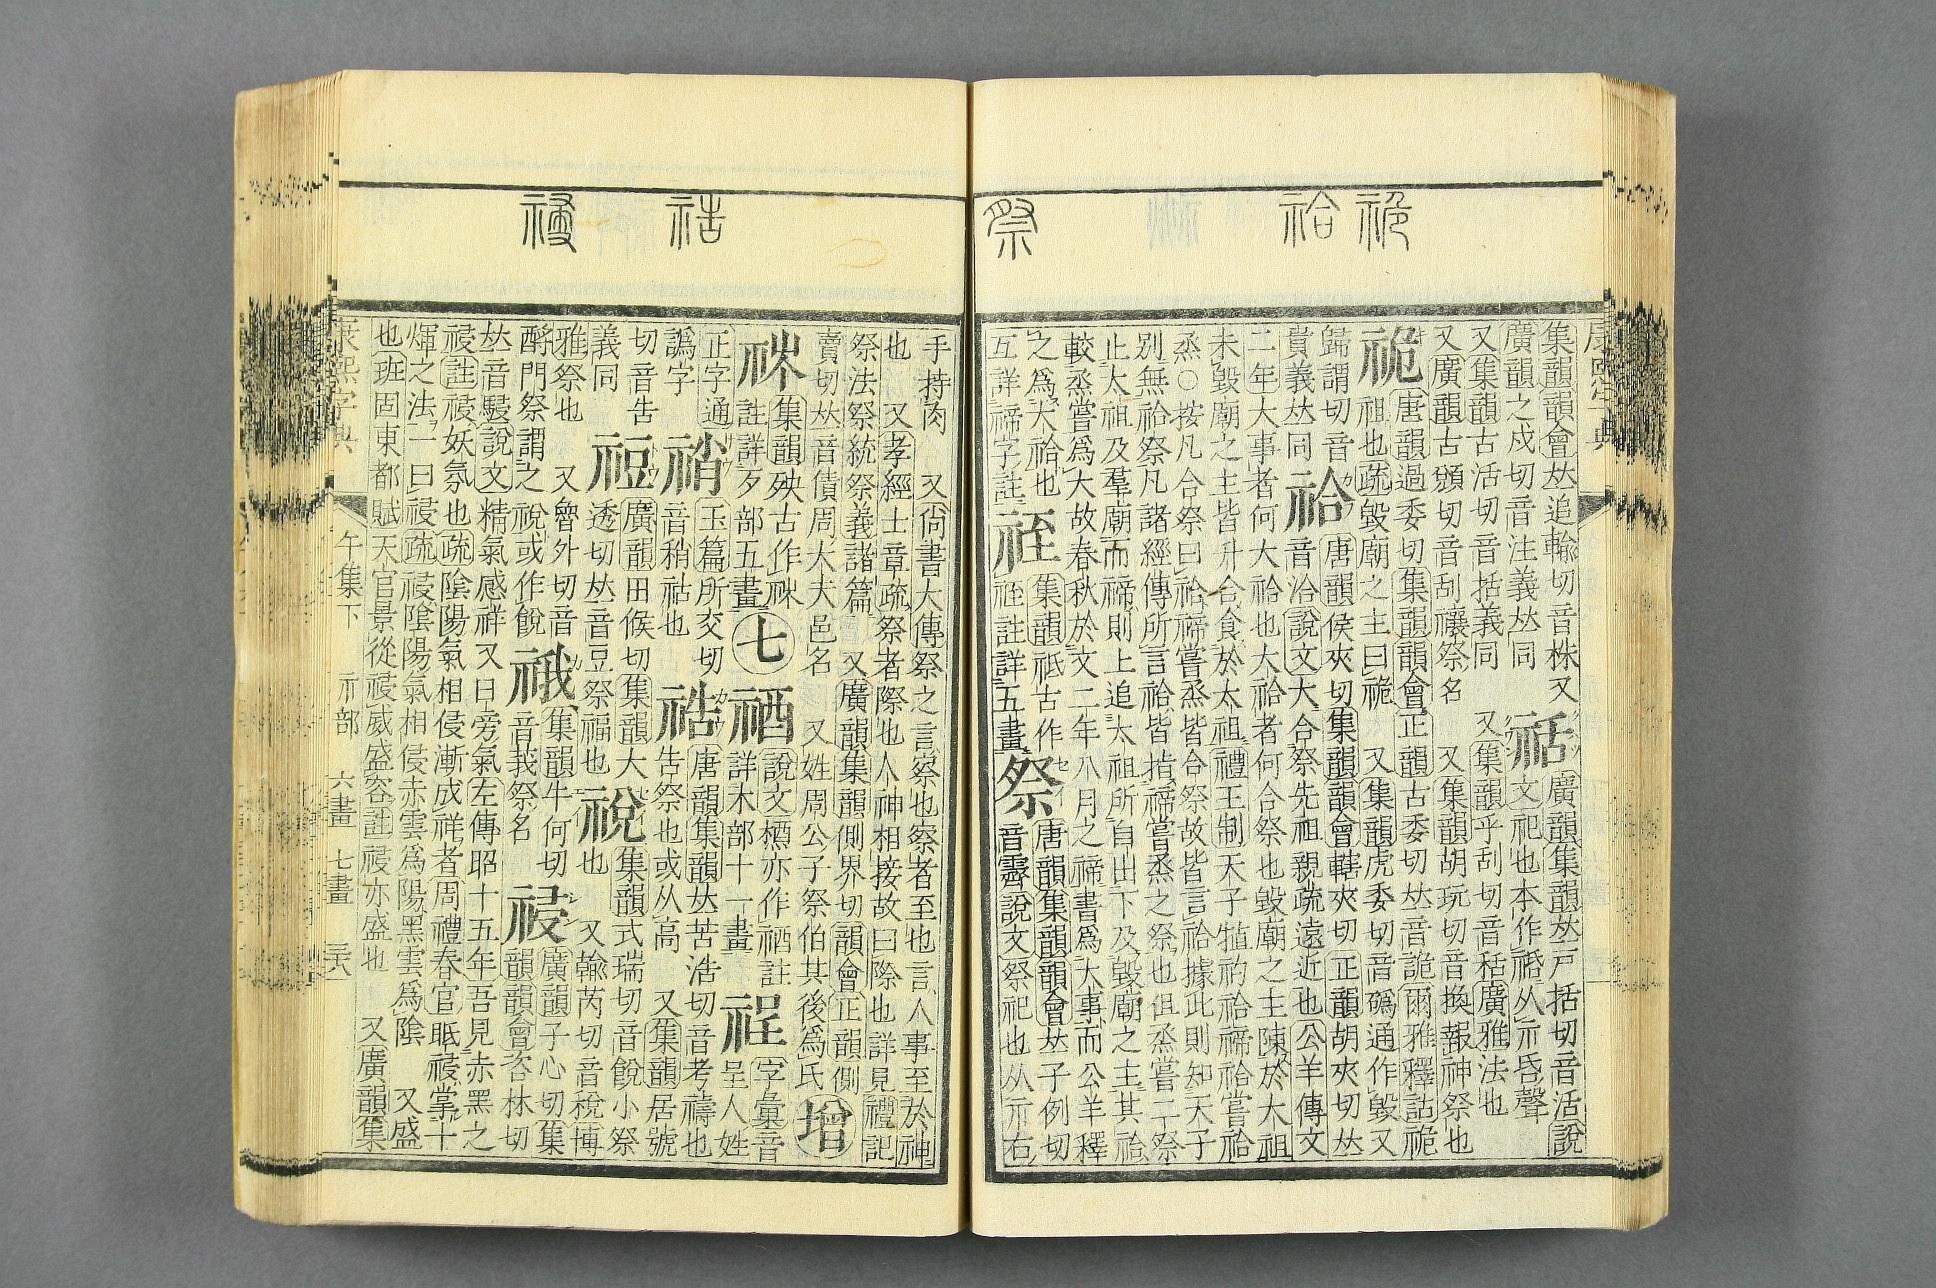 祪
祫
祭
康熙字典
集韻韻會𠀤追輸切音株又
廣韻之戍切音注義𠀤同
又集韻古活切音括義同
又廣韻古頒切音刮禳祭名
䄆
廣韻集韻𠀤戸括切音活說
文祀也本作𥙿从示昏聲
又集韻乎刮切音秳廣雅法也
又集韻胡玩切音換報神祭也
祪
唐韻過委切集韻韻會正韻古委切𠀤音詭爾雅釋詁祪
祖也疏毀廟之主曰祪 又集韻虎委切音䃣通作毀又
歸謂切音
貴義𠀤同
祫
唐韻侯夾切集韻韻會轄夾切正韻胡夾切𠀤
音洽說文大合祭先祖親疏遠近也公羊傳文
二年大事者何大祫也大祫者何合祭也毀廟之主陳於大祖
未毀廟之主皆升合食於太祖禮王制天子犆礿祫禘祫嘗祫
烝○按凡合祭曰祫禘嘗烝皆合祭故皆言祫據此則知天子
別無祫祭凡諸經傳所言祫皆指禘嘗烝之祭也但烝嘗二祭
止太祖及羣廟而禘則上追太祖所自出下及毀廟之主其祫
較烝嘗爲大故春秋於文二年八月之禘書爲大事而公羊釋
之爲大祫也
互詳禘字註
祬
集韻祗古作
祬註詳五畫
祭
唐韻集韻韻會𠀤子例切
音霽說文祭祀也从示右
祰
祲
手持肉 又尙書大傳祭之言察也察者至也言人事至於神
也 又孝經士章疏祭者際也人神相接故曰際也詳見禮記
祭法祭統祭義諸篇 又廣韻集韻側界切韻會正韻側
賣切𠀤音債周大夫邑名 又姓周公子祭伯其後爲氏
增
祩
集韻殃古作祩
註詳歹部五畫
七
䄛
說文槱亦作䄛註
詳木部十一畫
䄇
字彙音
呈人姓
正字通
譌字
䄻
玉篇所交切
音稍祜也
祰
唐韻集韻𠀤苦浩切音考禱也
告祭也或从高 又集韻居號
切音告
義同
䄈
廣韻田候切集韻大
透切𠀤音豆祭福也
祱
集韻式瑞切音餟小祭
也 又輸芮切音稅博
雅祭也 又魯外切音
酹門祭謂之祱或作餟
䄉
集韻牛何切
音莪祭名
祲
廣韻子心切集
韻韻會咨林切
𠀤音駸說文精氣感祥又日旁氣左傳昭十五年吾見赤黑之
祲註祲妖氛也疏陰陽氣相侵漸成祥者周禮春官眡祲掌十
煇之法一曰祲疏祲陰陽氣相侵赤雲爲陽黑雲爲陰 又盛
也班固東都賦天官景從祲威盛容註祲亦盛也 又廣韻集
康熙字典
午集下 示部 六畫 七畫 三八